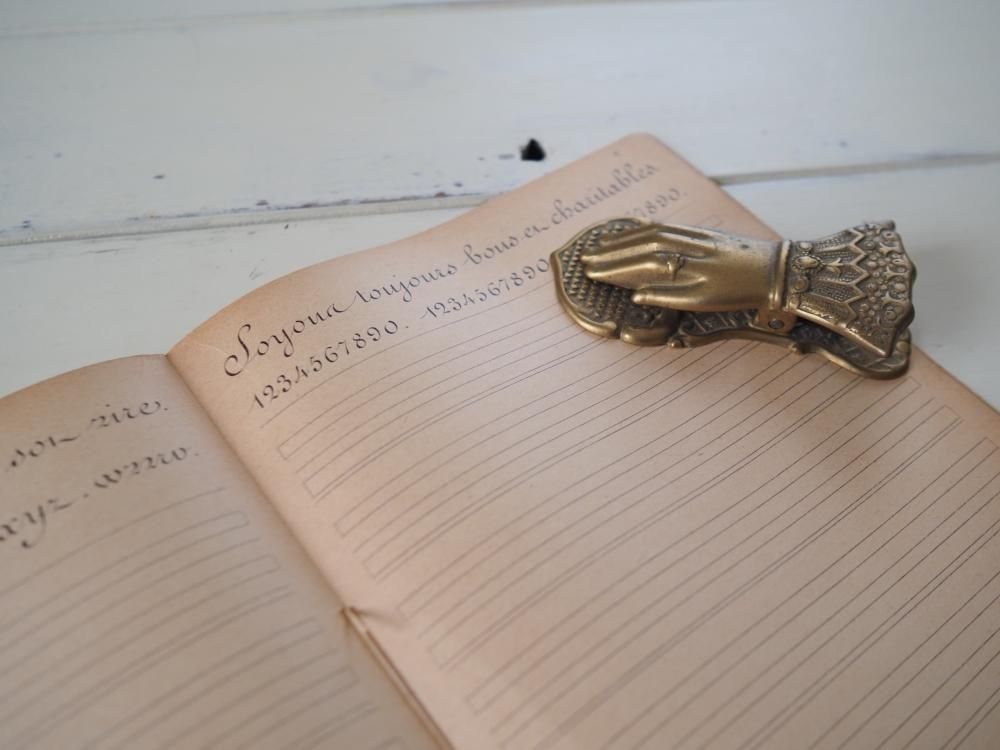 son rire.
xyz.
Soyons toujours bons et charitables
1234567890. 1234567890 890.